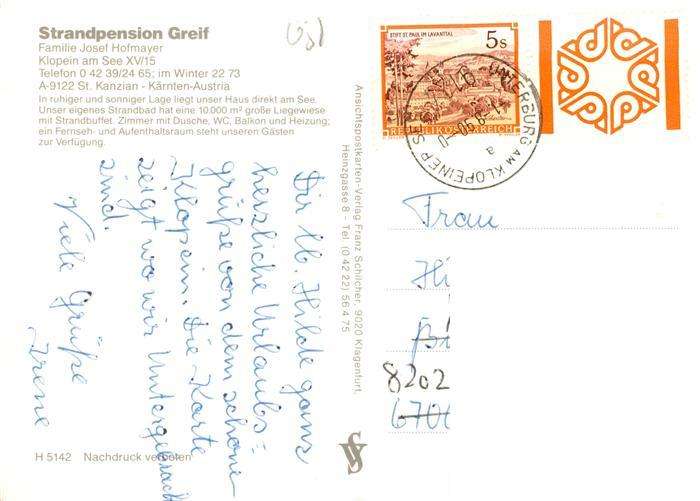 Strandpension Greif
Familie Josef Hofmayer
Klopein am See XV/15
Telefon 0 42 39/24 65; im Winter 22 73
A-9122 St. Kanzian - Kärnten-Austria
In ruhiger und sonniger Lage liegt unser Haus direkt am See.
Unser eigenes Strandbad hat eine 10.000 m² große Liegewiese
mit Strandbuffet. Zimmer mit Dusche, WC, Balkon und Heizung;
ein Fernseh- und Aufenthaltsraum steht unseren Gästen
zur Verfügung.
Dir lb. Hilde ganz
herzliche Urlaubs=
grüße von dem schöne
Klopein. Die Karte
zeigt wo wir Untergebracht
sind.
Viele Grüße
Irene
H 5142 Nachdruck verboten
Ansichtspostkarten-Verlag Franz Schilcher, 9020 Klagenfurt,
Heinzgasse 8 - Tel. (0 42 22) 56 4 75
STIFT ST. PAUL IM LAVANTTAL
5 S
REPUBLIK ÖSTERREICH
AM KLOPEINER SEE
a
Frau
Hi
Bi
8202